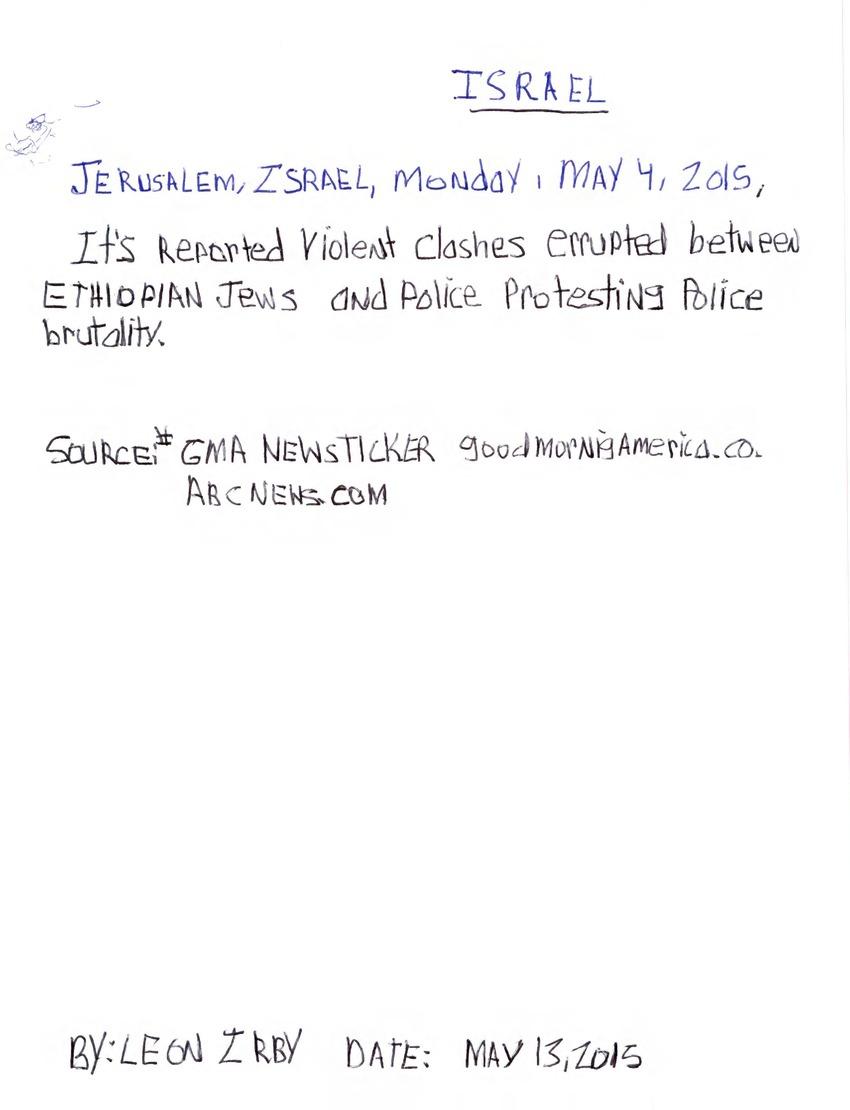 ISRAEL
JERUSALEM, ISRAEL, MONdAY, MAY 4, 2015,
It's Reported Violent Clashes errupted between
ETHIOPIAN Jews and Police Protesting Police
brutality.
SOURCE:# GMA NEWSTICKER goodmorNigAmerica.co.
ABCNEWS.COM
BY:LEON IRBY DATE: MAY 13,2015